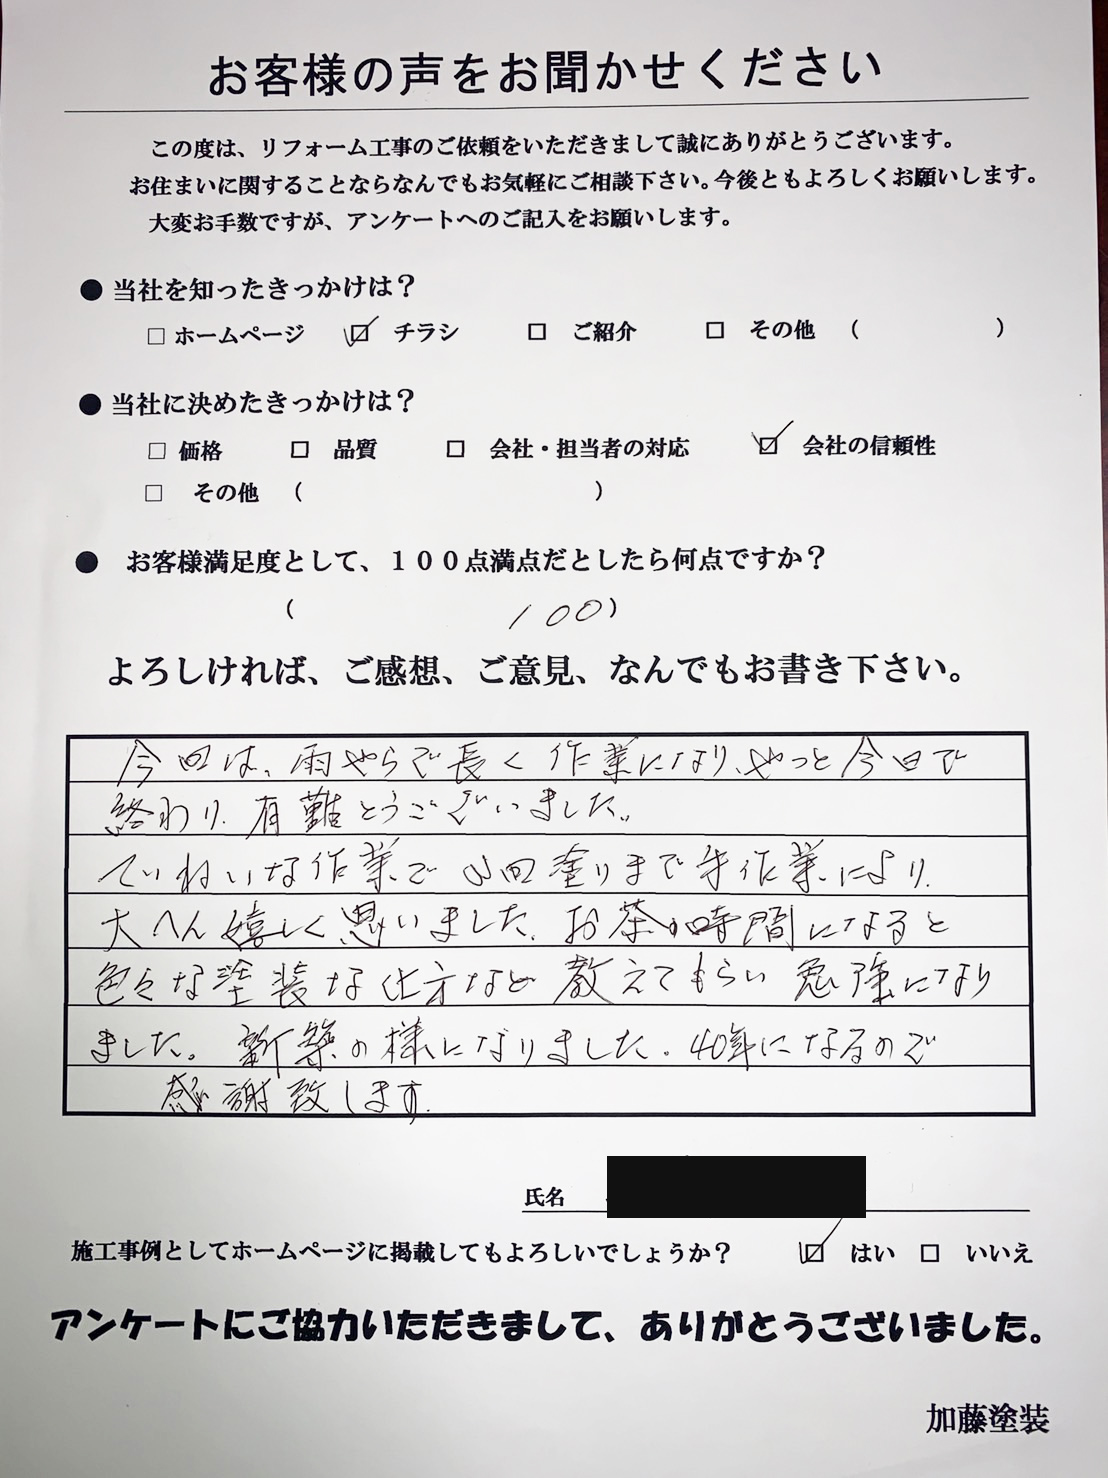 お客様の声をお聞かせください
この度は、リフォーム工事のご依頼をいただきまして誠にありがとうございます。
お住まいに関することならなんでもお気軽にご相談下さい。今後ともよろしくお願いします。
大変お手数ですが、アンケートへのご記入をお願いします。
● 当社を知ったきっかけは？
□ ホームページ ☑ チラシ □ ご紹介 □ その他 （ ）
● 当社に決めたきっかけは？
□ 価格 □ 品質 □ 会社・担当者の対応 ☑ 会社の信頼性
□ その他 （ ）
● お客様満足度として、１００点満点だとしたら何点ですか？
（ 100）
よろしければ、ご感想、ご意見、なんでもお書き下さい。
今回は、雨やらで長く作業になり、やっと今日で
終わり、有難とうございました。
ていねいな作業で 回塗りまで手作業により、
大へん嬉しく思いました。お茶の時間になると
色々な塗装な仕方など教えてもらい勉強になり
ました。新築の様になりました。40年になるので
感謝致します。
氏名
施工事例としてホームページに掲載してもよろしいでしょうか？ ☑ はい □ いいえ
アンケートにご協力いただきまして、ありがとうございました。
加藤塗装